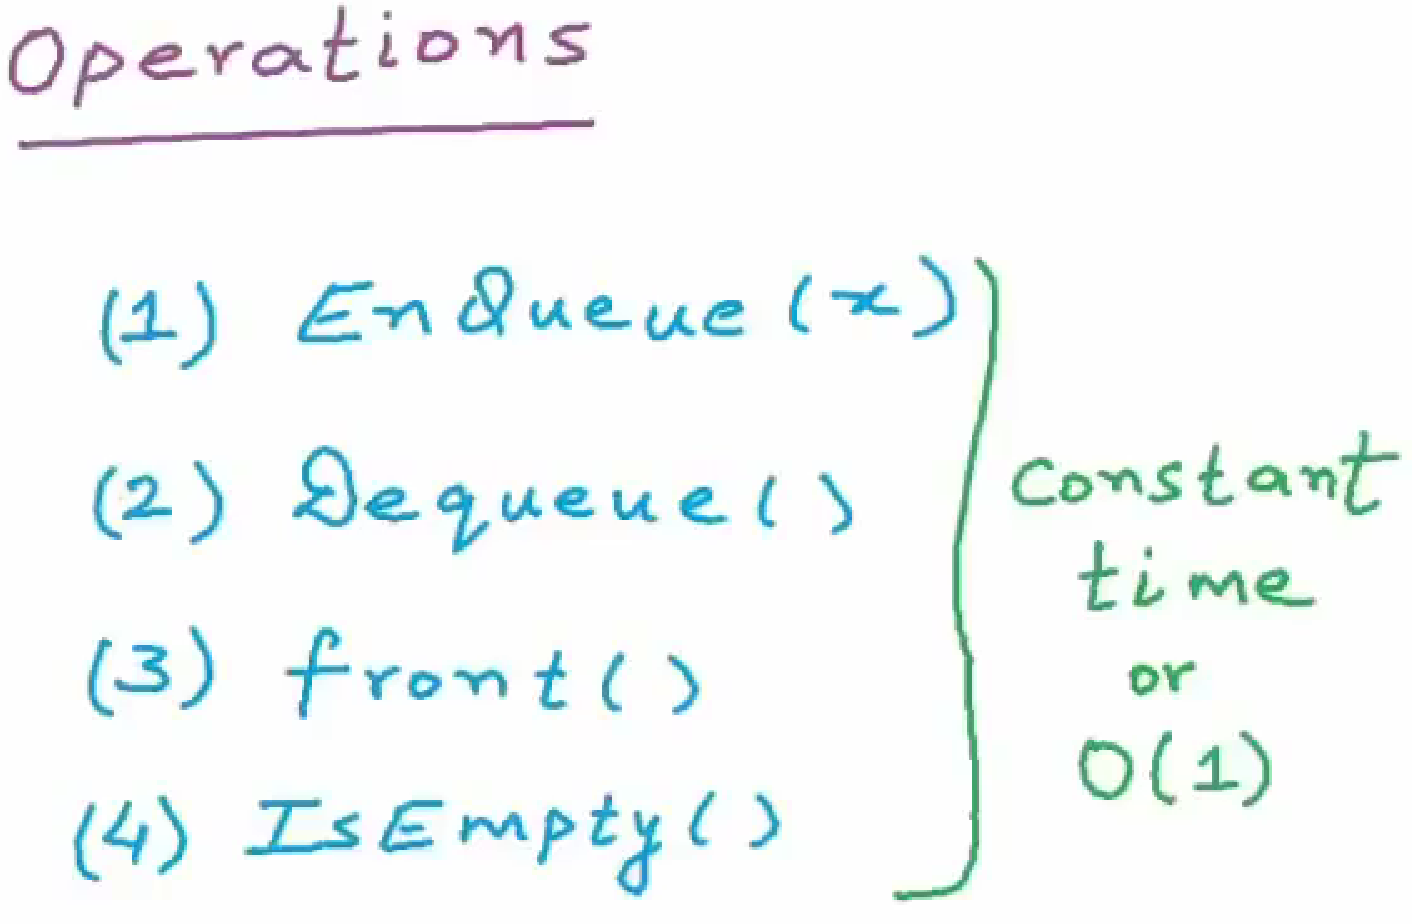 Operations
(1) EnQueue(x)
(2) Dequeue()
(3) front()
(4) IsEmpty()
Constant
time
or
O(1)